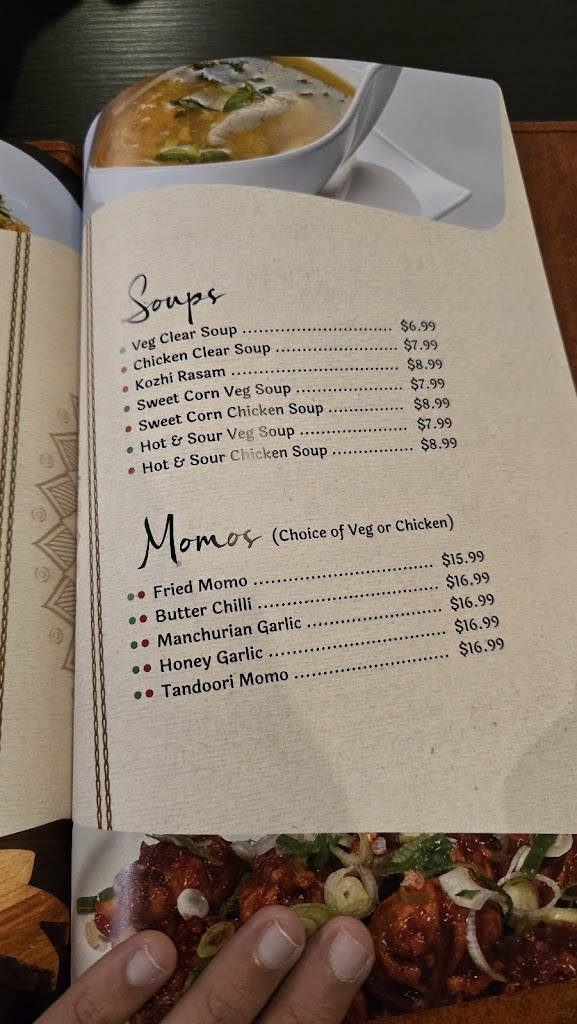 Soups
Veg Clear Soup ........................................ $6.99
Chicken Clear Soup ................................. $7.99
Kozhi Rasam ............................................. $8.99
Sweet Corn Veg Soup ............................. $7.99
Sweet Corn Chicken Soup .................... $8.99
Hot & Sour Veg Soup ............................... $7.99
Hot & Sour Chicken Soup ...................... $8.99
Momos (Choice of Veg or Chicken)
Fried Momo ............................................. $15.99
Butter Chilli ............................................. $16.99
Manchurian Garlic ................................. $16.99
Honey Garlic ............................................ $16.99
Tandoori Momo ....................................... $16.99